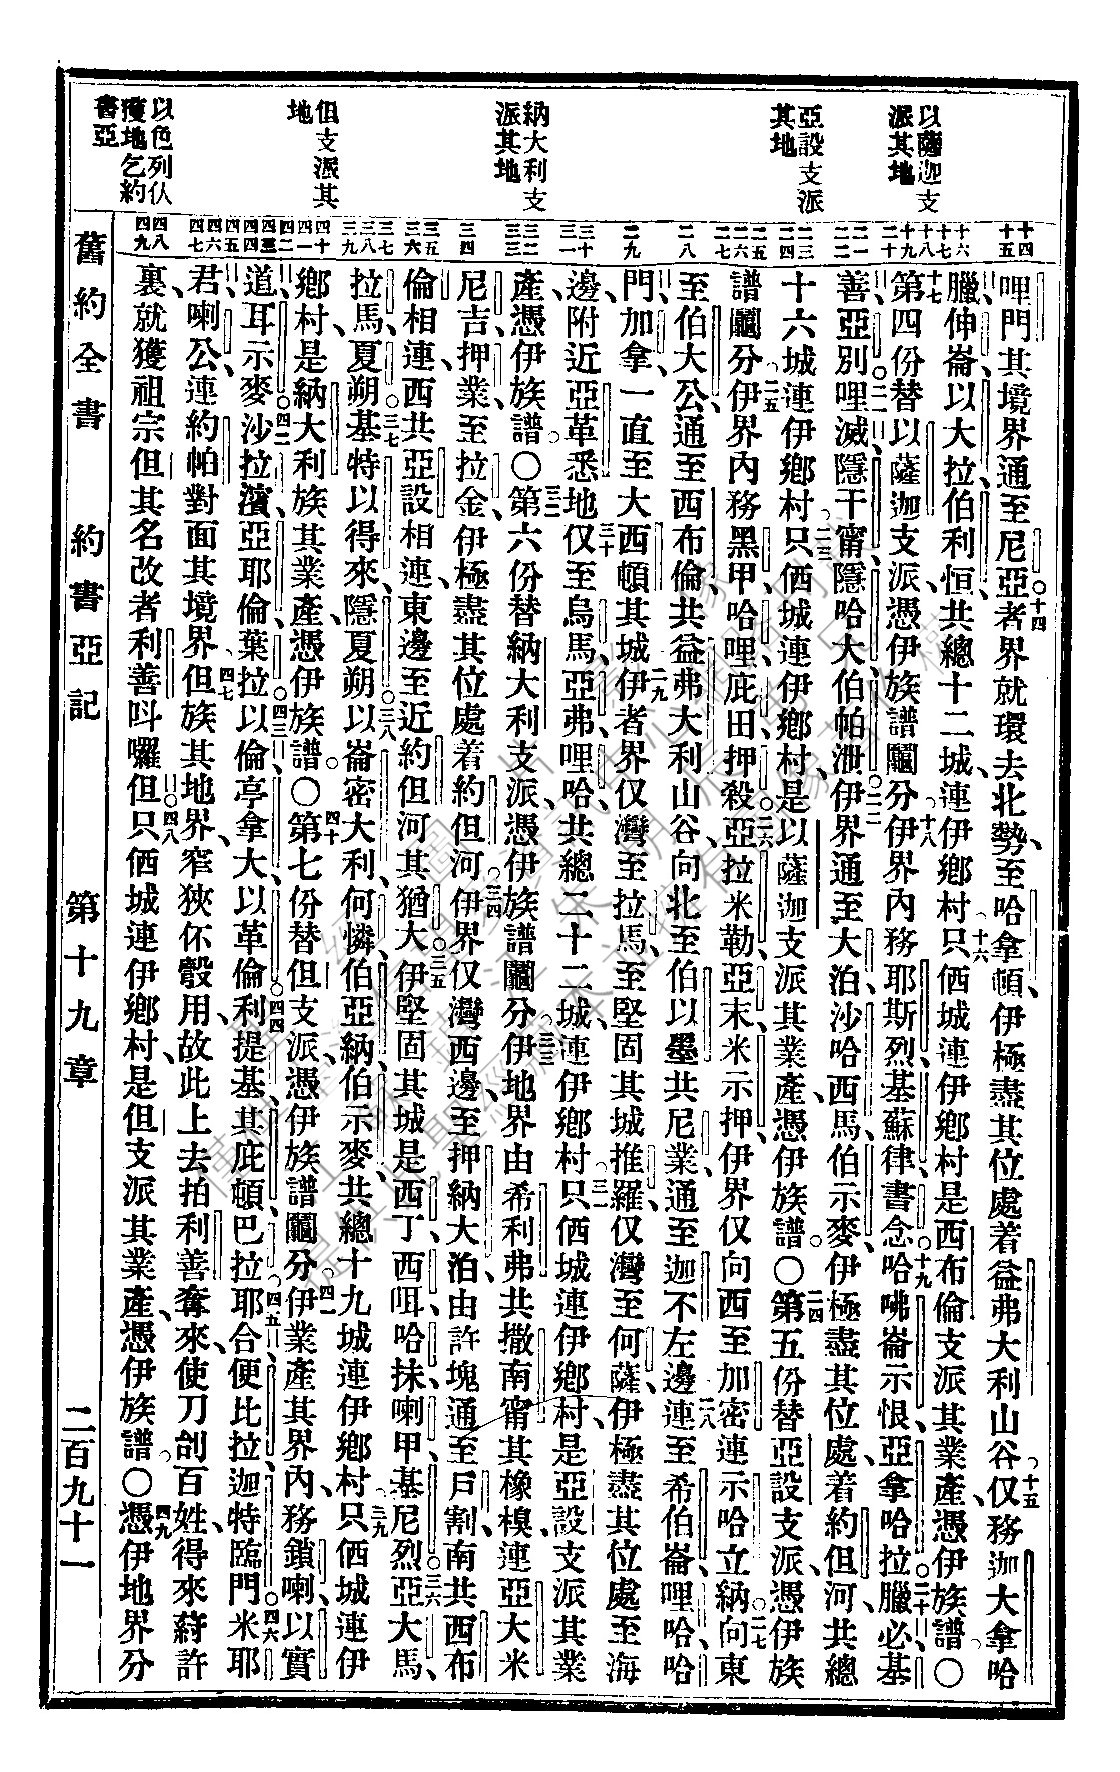 以薩迦支
派其地
亞設支派
其地
納大利支
派其地
但支派其
地
以色列仈
獲地乞約
書亞
哩門其境界通至尼亞者界就環去北勢至哈拿頓伊極盡其位處着益弗大利山谷仅務迦大拿哈
臘伸崙以大拉伯利恒共總十二城連伊鄉村只俩城連伊鄉村是西布倫支派其業產憑伊族譜〇
第四份替以薩迦支派憑伊族譜鬮分伊界內務耶斯烈基蘇律書念哈咈崙示恨亞拿哈拉臘必基
善亞別哩滅隱干甯隱哈大伯帕泄伊界通至大泊沙哈西馬伯示麥伊極盡其位處着約但河共總
十六城連伊鄉村只俩城連伊鄉村是以薩迦支派其業產憑伊族譜〇第五份替亞設支派憑伊族
譜鬮分伊界內務黑甲哈哩庇田押殺亞拉米勒亞末米示押伊界仅向西至加密連示哈立納向東
至伯大公通至西布倫共益弗大利山谷向北至伯以墨共尼業通至迦不左邊連至希伯崙哩哈哈
門加拿一直至大西頓其城伊者界仅灣至拉馬至堅固其城推羅仅灣至何薩伊極盡其位處至海
邊附近亞革悉地仅至烏馬亞弗哩哈共總二十二城連伊鄉村只俩城連伊鄉村是亞設支派其業
產憑伊族譜〇第六份替納大利支派憑伊族譜鬮分伊地界由希利弗共撒南甯其橡模連亞大米
尼吉押業至拉金伊極盡其位處着約但河伊界仅灣西邊至押納大泊由許塊通至戶割南共西布
倫相連西共亞設相連東邊至近約但河其猶大伊堅固其城是西丁西咀哈抹喇甲基尼烈亞大馬
拉馬夏朔基特以得來隱夏朔以崙密大利何憐伯亞納伯示麥共總十九城連伊鄉村只俩城連伊
鄉村是納大利族其業產憑伊族譜〇第七份替但支派憑伊族譜鬮分伊業產其界內務鎖喇以實
道耳示麥沙拉濱亞耶倫葉拉以倫亭拿大以革倫利提基其庇頓巴拉耶合便比拉迦特臨門米耶
君喇公連約帕對面其境界但族其地界窄狹伓骰用故此上去拍利善奪來使刀刣百姓得來蒔許
裏就獲祖宗但其名改者利善叫囉但只俩城連伊鄉村是但支派其業產憑伊族譜〇憑伊地界分
舊約全書 約書亞記 第十九章 二百九十一